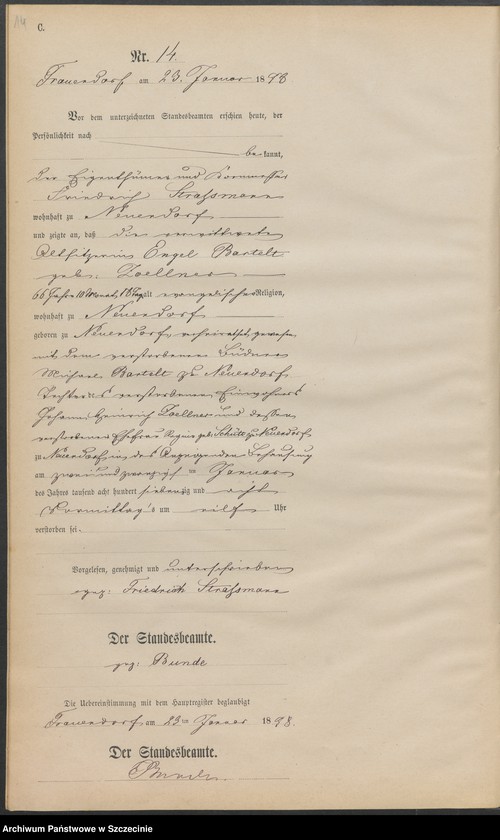 14
C.
Nr. 14.
Frauendorf am 23. Januar 1878
Vor dem unterzeichneten Standesbeamten erschien heute, der
Persönlichkeit nach
bekannt,
der Eigenthümer und
Friedrich Strassmann
wohnhaft zu Neuendorf
und zeigte an, daß die verwittwete
Altsitzerin Engel Bartelt
geb. Zoellner
66 Jahre 10 Monat, 18 Tag alt evangelischer Religion,
wohnhaft zu Neuendorf
geboren zu Neuendorf, verheirathet gewesen
mit dem verstorbenen Büdner
Michael Bartelt zu Neuendorf
Tochter des verstorbenen Einwohners
Johann Heinrich Zoellner und dessen
verstorbenen Ehefrau Regine geb. Schütt zu Neuendorf
zu Neuendorf in des Behausung
am zweiundzwanzigsten Januar
des Jahres tausend acht hundert siebenzig und acht
Vormittags um elf Uhr
verstorben sei.
Vorgelesen, genehmigt und unterschrieben
gez. Friedrich Strassmann
Der Standesbeamte.
gez. Bunde
Die Uebereinstimmung mit dem Hauptregister beglaubigt
Frauendorf am 23ten Januar 1878.
Der Standesbeamte.
Bunde
Archiwum Państwowe w Szczecinie